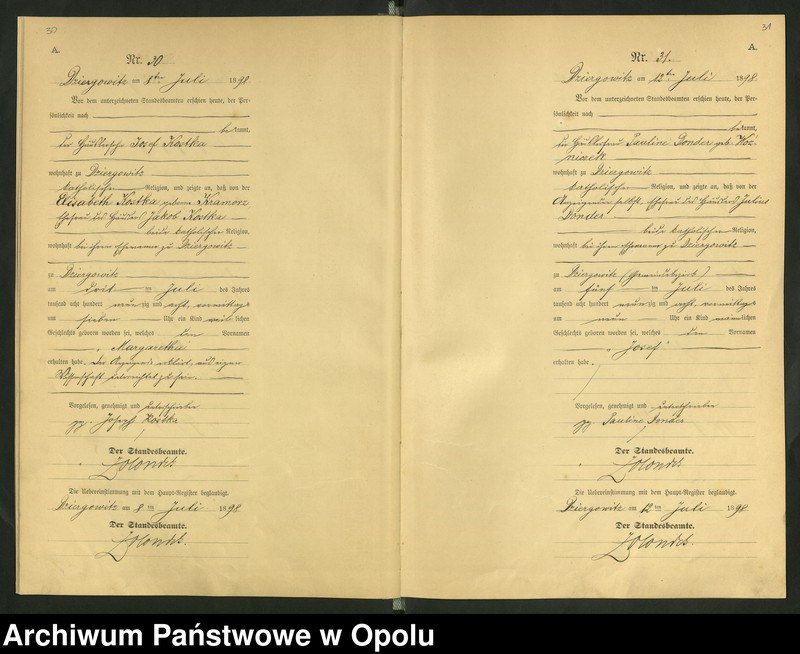 30
A.
Nr. 30
Dziergowitz am 8ten Juli 1898
Vor dem unterzeichneten Standesbeamten erschien heute, der Per-
sönlichkeit nach
bekannt,
Josef Kostka
wohnhaft zu Dziergowitz
katholischer Religion, und zeigte an, daß von der
Elisabeth Kostka geborene Kramorz
Ehefrau des Häuslers Jakob Kostka
beide katholischer Religion,
wohnhaft bei ihrem Ehemanne zu Dziergowitz
zu Dziergowitz
am drei ten Juli des Jahres
tausend acht hundert neun zig und acht, vormittags
um sieben Uhr ein Kind weiblichen
Geschlechts geboren worden sei, welches den Vornamen
Margaretha
erhalten habe. Der Anzeigende erklärt, aus eigener
Wissenschaft unterrichtet zu sein.
Vorgelesen, genehmigt und unterschrieben
gez. Joseph Kostka
Der Standesbeamte.
Zolondek
Die Uebereinstimmung mit dem Haupt-Register beglaubigt.
Dziergowitz am 8 ten Juli 1898
Der Standesbeamte.
Zolondek.
31
A.
Nr. 31.
Dziergowitz am 12ten Juli 1898
Vor dem unterzeichneten Standesbeamten erschien heute, der Per-
sönlichkeit nach
bekannt,
die Häuslerfrau Pauline Donder geb. Koz-
niczek
wohnhaft zu Dziergowitz
katholischer Religion, und zeigte an, daß von der
Anzeigenden selbst, Ehefrau des Häuslers Julius
Donder
beide katholischer Religion,
wohnhaft bei ihrem Ehemanne zu Dziergowitz
zu Dziergowitz (Gemeindebezirk)
am fünf ten Juli des Jahres
tausend acht hundert neun zig und acht, vormittags
um neun Uhr ein Kind männlichen
Geschlechts geboren worden sei, welches den Vornamen
"Josef"
erhalten habe.
Vorgelesen, genehmigt und unterschrieben
gez. Pauline Donder
Der Standesbeamte.
Zolondek
Die Uebereinstimmung mit dem Haupt-Register beglaubigt.
Dziergowitz am 12 ten Juli 1898
Der Standesbeamte.
Zolondek.
Archiwum Państwowe w Opolu